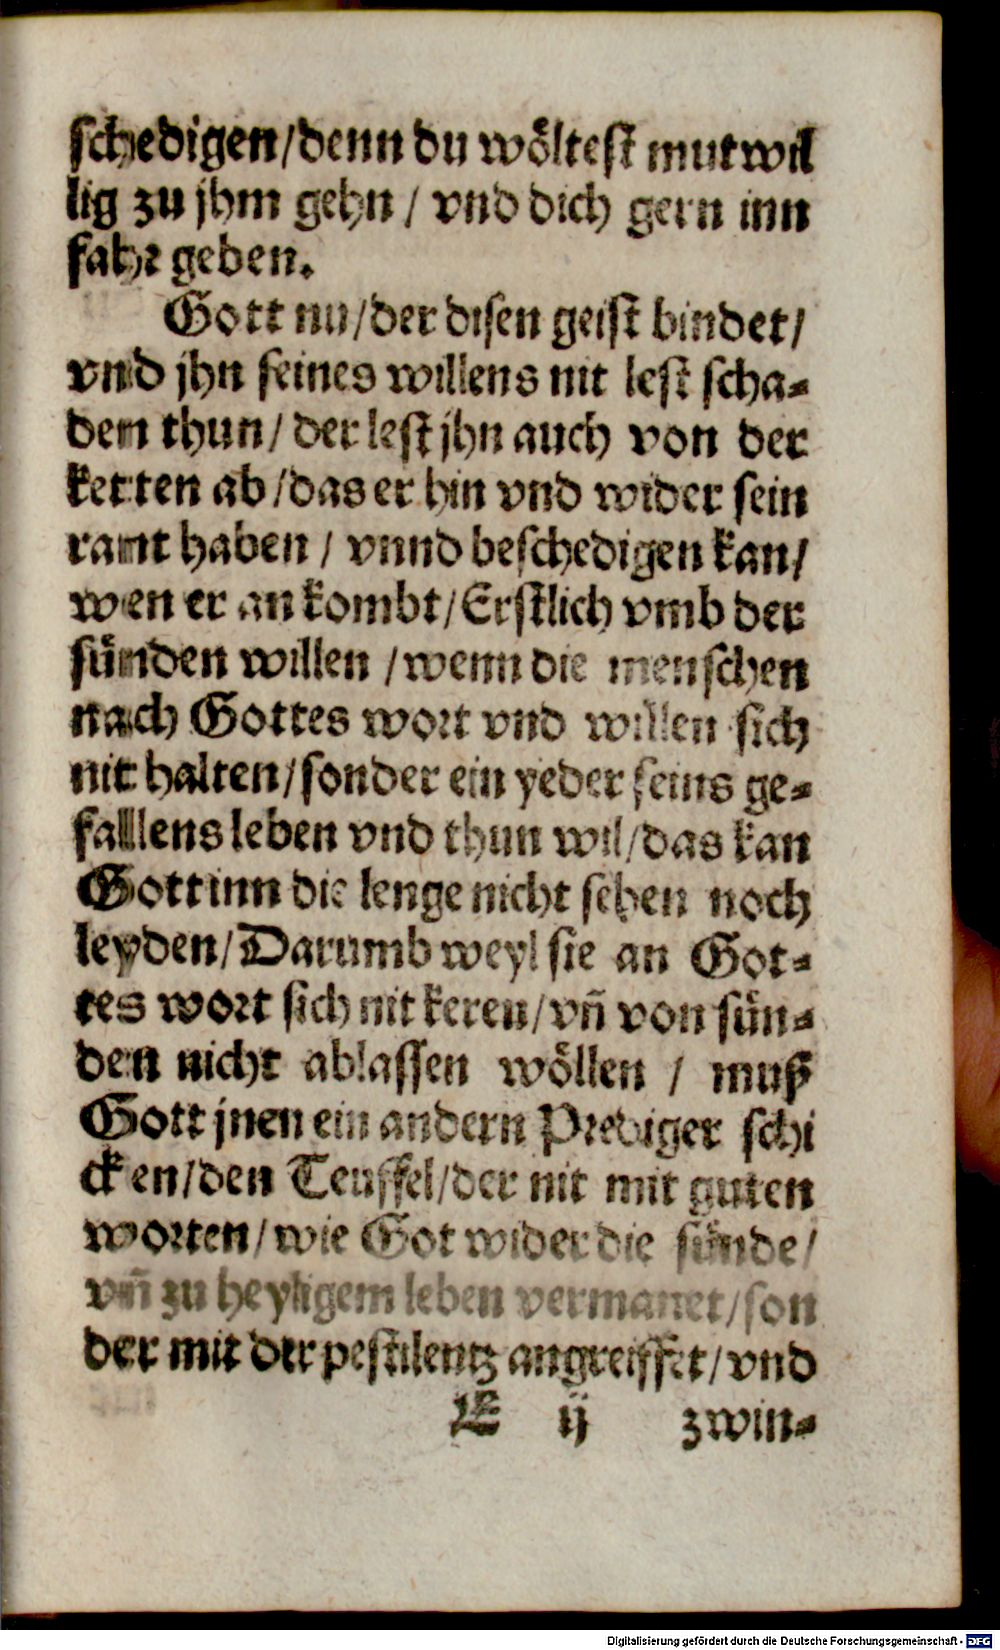 schedigen/denn du wöltest mutwil
lig zu jhm gehn / vnd dich gern inn
fahr geben.
Gott nu/der disen geist bindet/
vnd jhn seines willens nit lest scha-
den thun/ der lest jhn auch von der
ketten ab/das er hin vnd wider sein
ramt haben / vnnd beschedigen kan/
wen er an kombt/Erstlich vmb der
sünden willen /wenn die menschen
nach Gottes wort vnd willen sich
nit halten/sonder ein yeder seins ge-
fallens leben vnd thun wil/das kan
Gott inn die lenge nicht sehen noch
leyden/Darumb weyl sie an Got-
tes wort sich nit keren/vñ von sün-
den nicht ablassen wöllen / muß
Gott jnen ein andern Prediger schi
cken/den Teuffel/der nit mit guten
worten/wie Got wider die sünde/
vñ zu heyligem leben vermanet/son
der mit der pestilentz angreiffet/vnd
E ij zwin-
Digitalisierung gefördert durch die Deutsche Forschungsgemeinschaft - DFG